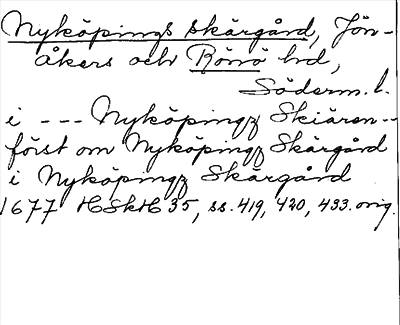 Nyköpings skärgård, Jön-
åkers och Rönö hd,
Söderm. l.
i --- Nyköpingz Skiären--
först om Nyköpingz Skärgård
i Nyköpingz Skärgård
1677 HSkH 35, ss. 419, 420, 433. orig.